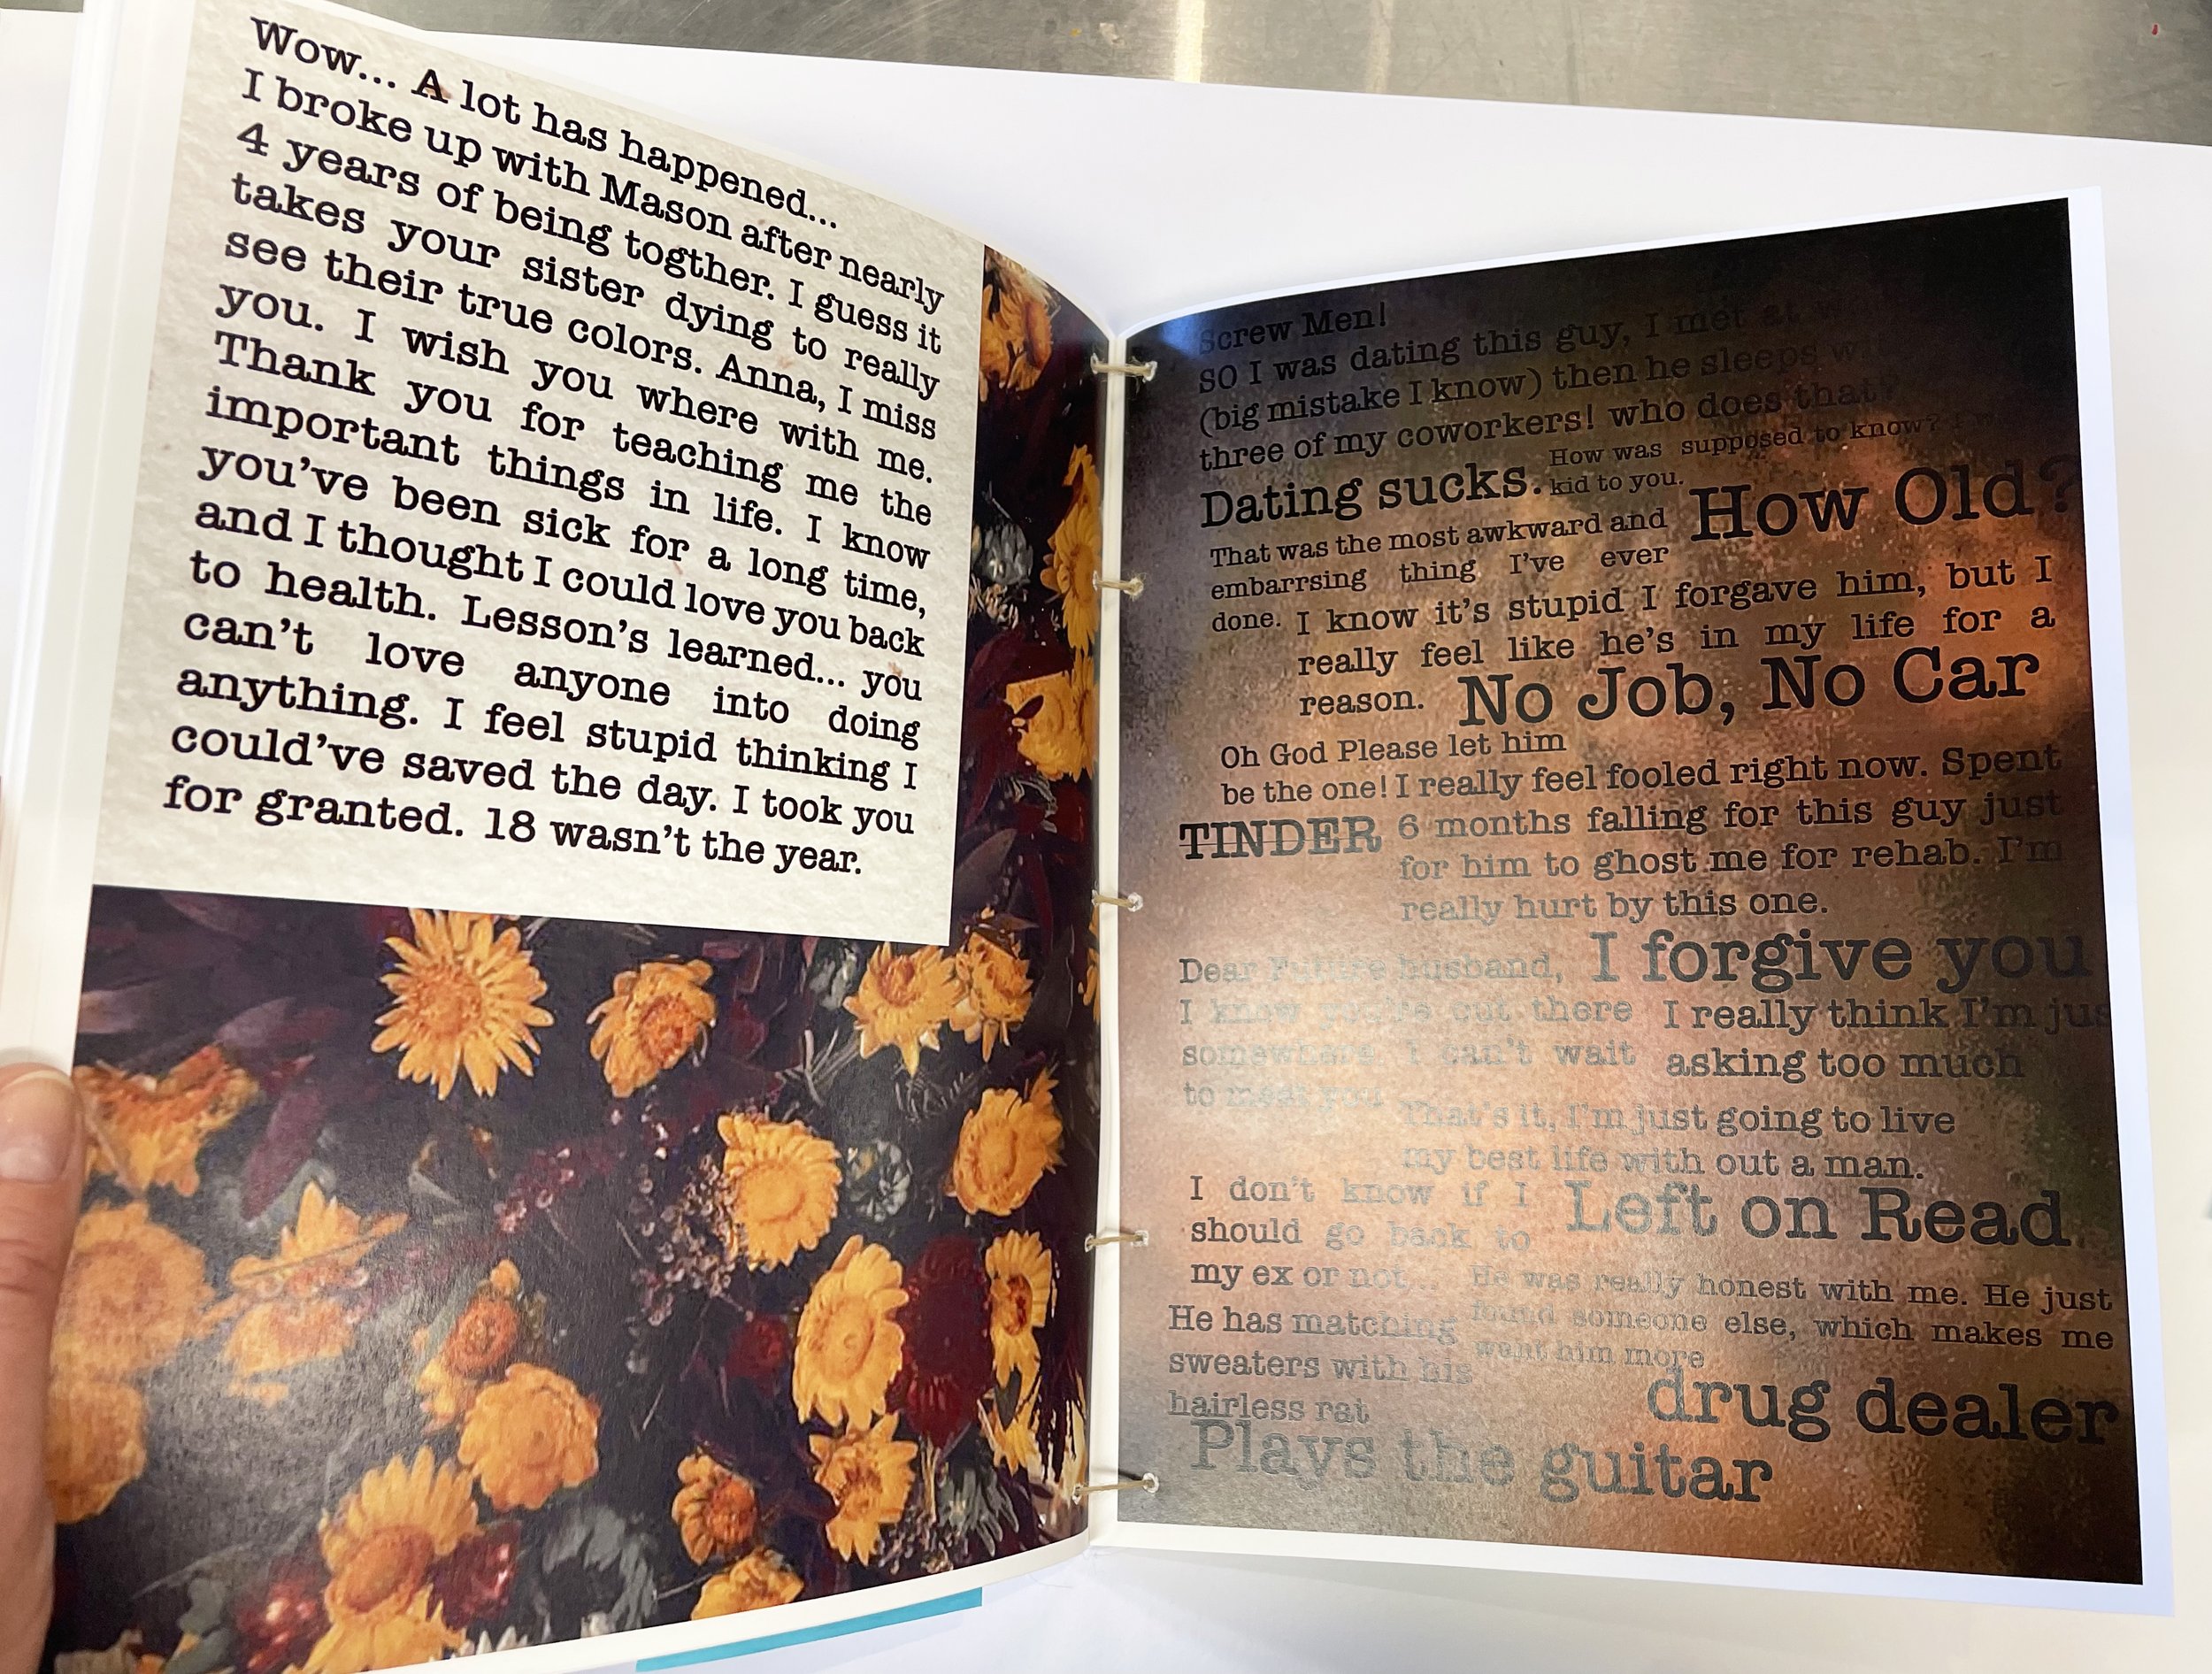 Wow... A lot has happened...
I broke up with Mason after nearly
4 years of being togther. I guess it
takes your sister dying to really
see their true colors. Anna, I miss
you. I wish you where with me.
Thank you for teaching me the
important things in life. I know
you've been sick for a long time,
and I thought I could love you back
to health. Lesson's learned... you
can't love anyone into doing
anything. I feel stupid thinking I
could've saved the day. I took you
for granted. 18 wasn't the year.
Screw Men!
SO I was dating this guy, I met at
(big mistake I know) then he sleeps
three of my coworkers! who does that?
Dating sucks.
How was supposed to know?
kid to you.
How Old?
That was the most awkward and
embarrsing thing I've ever
done.
I know it's stupid I forgave him, but I
really feel like he's in my life for a
reason.
No Job, No Car
Oh God Please let him
be the one!
I really feel fooled right now. Spent
6 months falling for this guy just
for him to ghost me for rehab. I'm
really hurt by this one.
TINDER
Dear Future husband,
I know you're out there
somewhere I can't wait
to meet you
I forgive you
I really think I'm jus
asking too much
That's it, I'm just going to live
my best life with out a man.
I don't know if I
should go back to
my ex or not...
Left on Read
He was really honest with me. He just
found someone else, which makes me
want him more
He has matching
sweaters with his
hairless rat
drug dealer
Plays the guitar